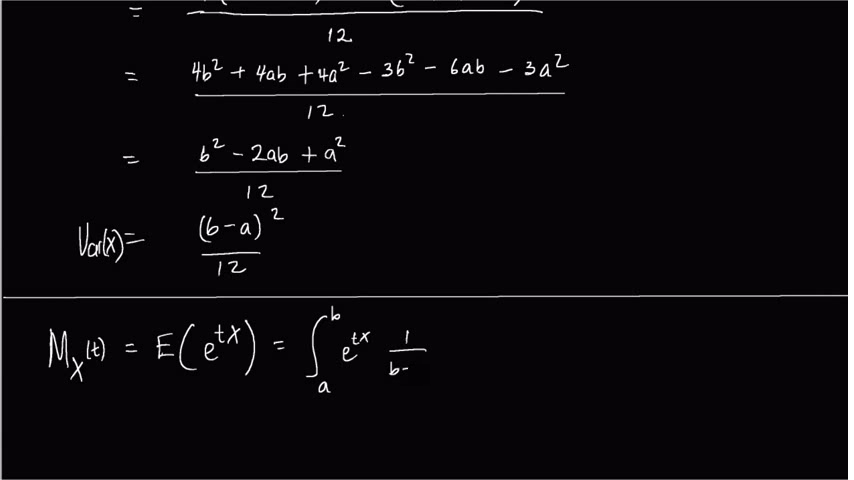 =
12
= 4b² + 4ab + 4a² - 3b² - 6ab - 3a²
12
= b² - 2ab + a²
12
Var(x) = (b-a)²
12
M_X(t) = E(e^{tX}) = ∫_a^b e^{tx} 1
b-